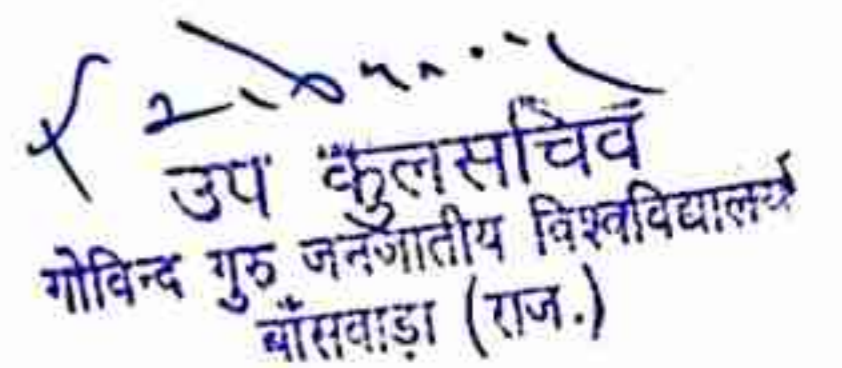 उप कुलसचिव
गोविन्द गुरु जनजातीय विश्वविद्यालय
बाँसवाड़ा (राज.)